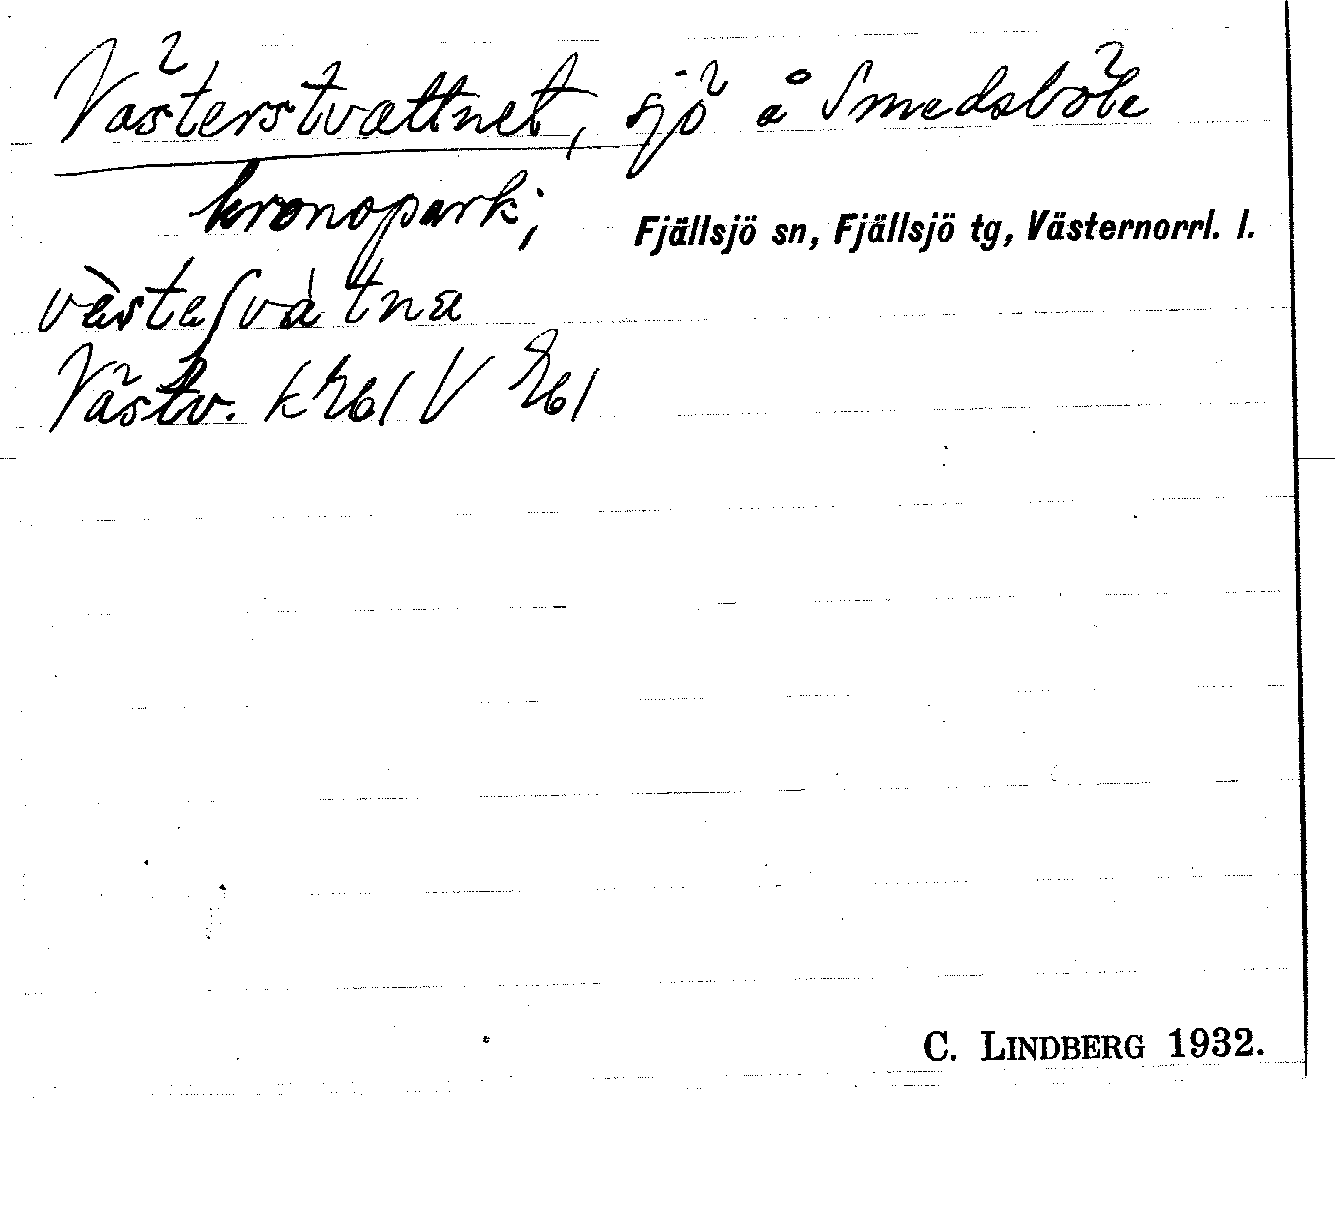 Västerstvattnet, sjö å Smedsböle
kronopark;
Fjällsjö sn, Fjällsjö tg, Västernorrl. l.
vàsteʃvàtna
Västv.
C. LINDBERG 1932.